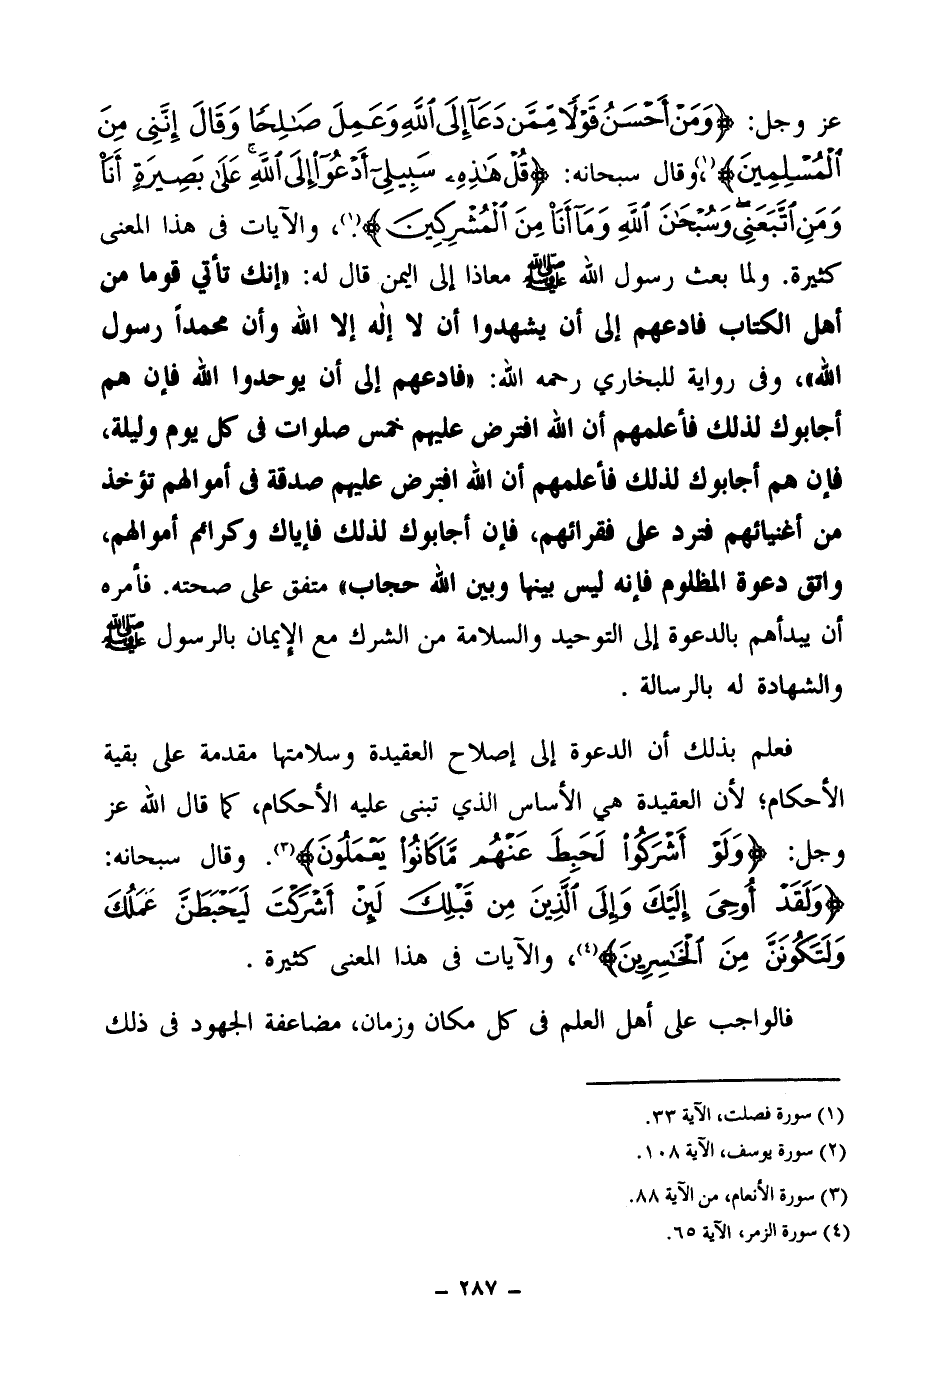 عز وجل: ﴿وَمَنْ أَحْسَنُ قَوْلًا مِّمَّن دَعَآ إِلَى ٱللَّهِ وَعَمِلَ صَـٰلِحًا وَقَالَ إِنَّنِى مِنَ
ٱلْمُسْلِمِينَ﴾(١)، وقال سبحانه: ﴿قُلْ هَـٰذِهِۦ سَبِيلِىٓ أَدْعُوٓا۟ إِلَى ٱللَّهِ ۚ عَلَىٰ بَصِيرَةٍ أَنَا۠
وَمَنِ ٱتَّبَعَنِى ۖ وَسُبْحَـٰنَ ٱللَّهِ وَمَآ أَنَا۠ مِنَ ٱلْمُشْرِكِينَ﴾(١)، والآيات فى هذا المعنى
كثيرة. ولما بعث رسول الله ﷺ معاذا إلى اليمن قال له: «إنك تأتي قوما من
أهل الكتاب فادعهم إلى أن يشهدوا أن لا إلٰه إلا الله وأن محمداً رسول
الله»، وفى رواية للبخاري رحمه الله: «فادعهم إلى أن يوحدوا الله فإن هم
أجابوك لذلك فأعلمهم أن الله افترض عليهم خمس صلوات فى كل يوم وليلة،
فإن هم أجابوك لذلك فأعلمهم أن الله افترض عليهم صدقة فى أموالهم تؤخذ
من أغنيائهم فترد على فقرائهم، فإن أجابوك لذلك فإياك وكرائم أموالهم،
واتق دعوة المظلوم فإنه ليس بينها وبين الله حجاب» متفق على صحته. فأمره
أن يبدأهم بالدعوة إلى التوحيد والسلامة من الشرك مع الإيمان بالرسول ﷺ
والشهادة له بالرسالة .
فعلم بذلك أن الدعوة إلى إصلاح العقيدة وسلامتها مقدمة على بقية
الأحكام؛ لأن العقيدة هي الأساس الذي تبنى عليه الأحكام، كما قال الله عز
وجل: ﴿وَلَوْ أَشْرَكُوا۟ لَحَبِطَ عَنْهُم مَّا كَانُوا۟ يَعْمَلُونَ﴾(٣). وقال سبحانه:
﴿وَلَقَدْ أُوحِىَ إِلَيْكَ وَإِلَى ٱلَّذِينَ مِن قَبْلِكَ لَئِنْ أَشْرَكْتَ لَيَحْبَطَنَّ عَمَلُكَ
وَلَتَكُونَنَّ مِنَ ٱلْخَـٰسِرِينَ﴾(٤)، والآيات فى هذا المعنى كثيرة .
فالواجب على أهل العلم فى كل مكان وزمان، مضاعفة الجهود فى ذلك
(١) سورة فصلت، الآية ٣٣.
(٢) سورة يوسف، الآية ١٠٨.
(٣) سورة الأنعام، من الآية ٨٨.
(٤) سورة الزمر، الآية ٦٥.
- ٢٨٧ -